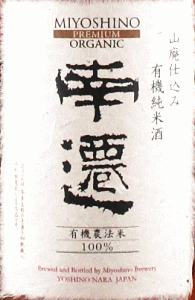 MIYOSHINO
PREMIUM
ORGANIC
山廃仕込み
有機純米酒
南遷
有機農法米
100%
Brewed and Bottled by Miyoshino Brewery
YOSHINO NARA JAPAN